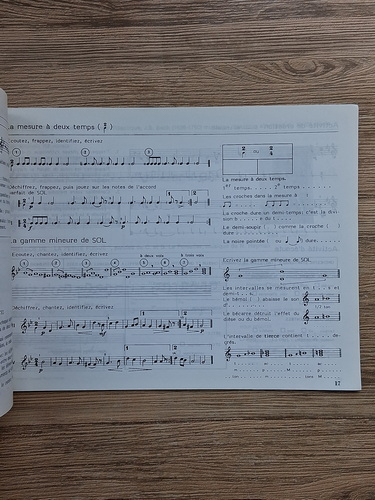 La mesure à deux temps
Ecoutez, frappez, identifiez, écrivez
1 2 3
Déchiffrez, frappez, puis jouez sur les notes de l'accord
parfait de SOL
1 2
La gamme mineure de SOL
Ecoutez, chantez, identifiez, écrivez
à deux voix à trois voix
Déchiffrez, chantez, identifiez, écrivez
1 2
1 2
2 ou 2
4
La mesure à deux temps.
1er temps....... 2e temps.....
Les croches dans la mesure à
La croche dure un demi-temps: c'est la divi-
sion b...... e du t....
Le demi-soupir ( ) comme la croche ( )
dure......
La noire pointée ( ou ) dure......
Ecrivez la gamme mineure de SOL
Les intervalles se mesurent en t... s et
demi-t... s.
Le bémol ( ) abaisse le son
d'
Le bécarre détruit l'effet du
dièse ou du bémol.
L'intervalle de tierce contient t..... de-
grés.
17